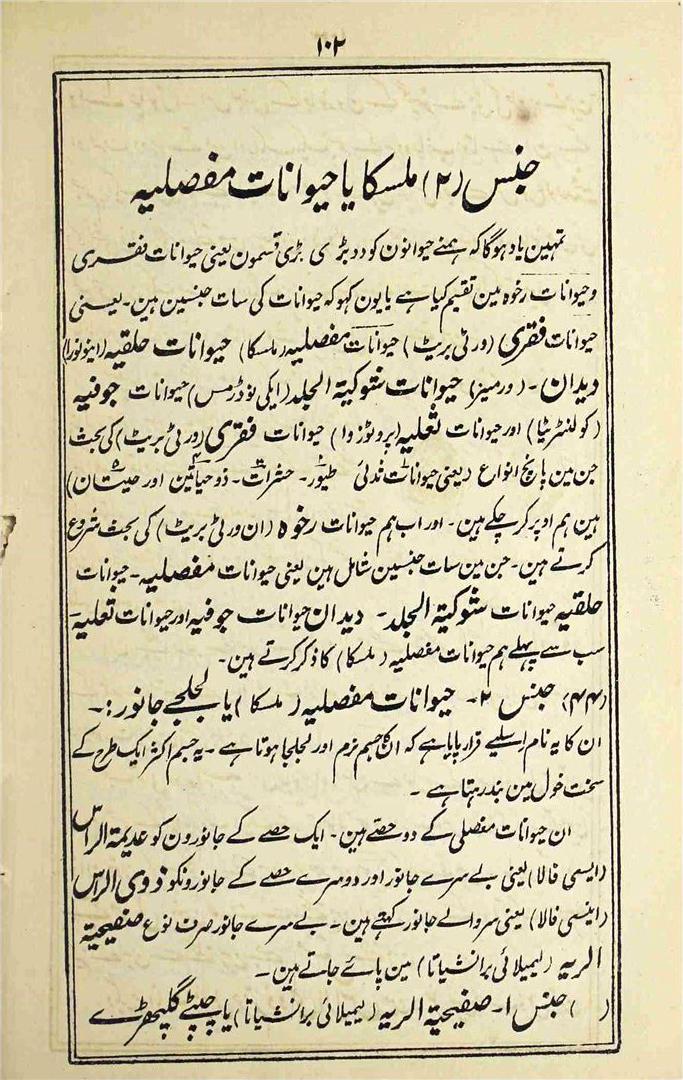 ۱۰۲
جنس (۲) ملسکا یا حیوانات مفصلیہ
تمہین یاد ہوگا کہ ہمنے حیوانون کو دو بڑی بڑی قسمون یعنی حیوانات فقری
وحیوانات رخوہ مین تقسیم کیا ہے یا یون کہو کہ حیوانات کی سات جنسین ہین۔ یعنی
حیوانات فقری (ورٹی بریٹ) حیوانات مفصلیہ (ملسکا) حیوانات حلقیہ (اینولوزا)
دیدان۔ (ورمیز) حیوانات شوکیۃ الجلد (ایکی نوڈرمس) حیوانات جوفیہ
(کولنٹریٹا) اور حیوانات ثعلیہ (پروٹوزوا) حیوانات فقری (ورٹی بریٹ) کی بحث
جن مین پانچ انواع (یعنی حیوانات ثدئی طیور۔ حشرات۔ ذوحیاتین اور حیتان)
ہین ہم اوپر کرچکے ہین۔ اور اب ہم حیوانات رخوہ (ان ورٹی بریٹ) کی بحث شروع
کرتے ہین۔ جن مین سات جنسین شامل ہین یعنی حیوانات مفصلیہ۔ حیوانات
حلقیہ حیوانات شوکیۃ الجلد۔ دیدان حیوانات جوفیہ اور حیوانات ثعلیہ۔
سب سے پہلے ہم حیوانات مفصلیہ (ملسکا) کا ذکر کرتے ہین۔
(۴۴) جنس ۲۔ حیوانات مفصلیہ (ملسکا) یا لجلجے جانور:۔
ان کا یہ نام اسلیے قرار پایا ہے کہ ان کا جسم نرم اور لجلجا ہوتا ہے۔ یہ جسم اکثر ایک طرح کے
سخت خول مین بند رہتا ہے۔
ان حیوانات مفصلی کے دو حصے ہین۔ ایک حصے کے جانورون کو عدیمۃ الراس
(ایسی فالا) یعنی بے سرے جانور اور دوسرے حصے کے جانورونکو ذوی الراس
(اینسی فالا) یعنی سروالے جانور کہتے ہین۔ بے سرے جانور صرف نوع صفیحیۃ
الریہ (لیمیلائی برانشیاتا) مین پائے جاتے ہین۔
( ) جنس ۱۔ صفیحیۃ الریہ (لیمیلائی برانشیاتا) یا چپٹے گلپھڑے